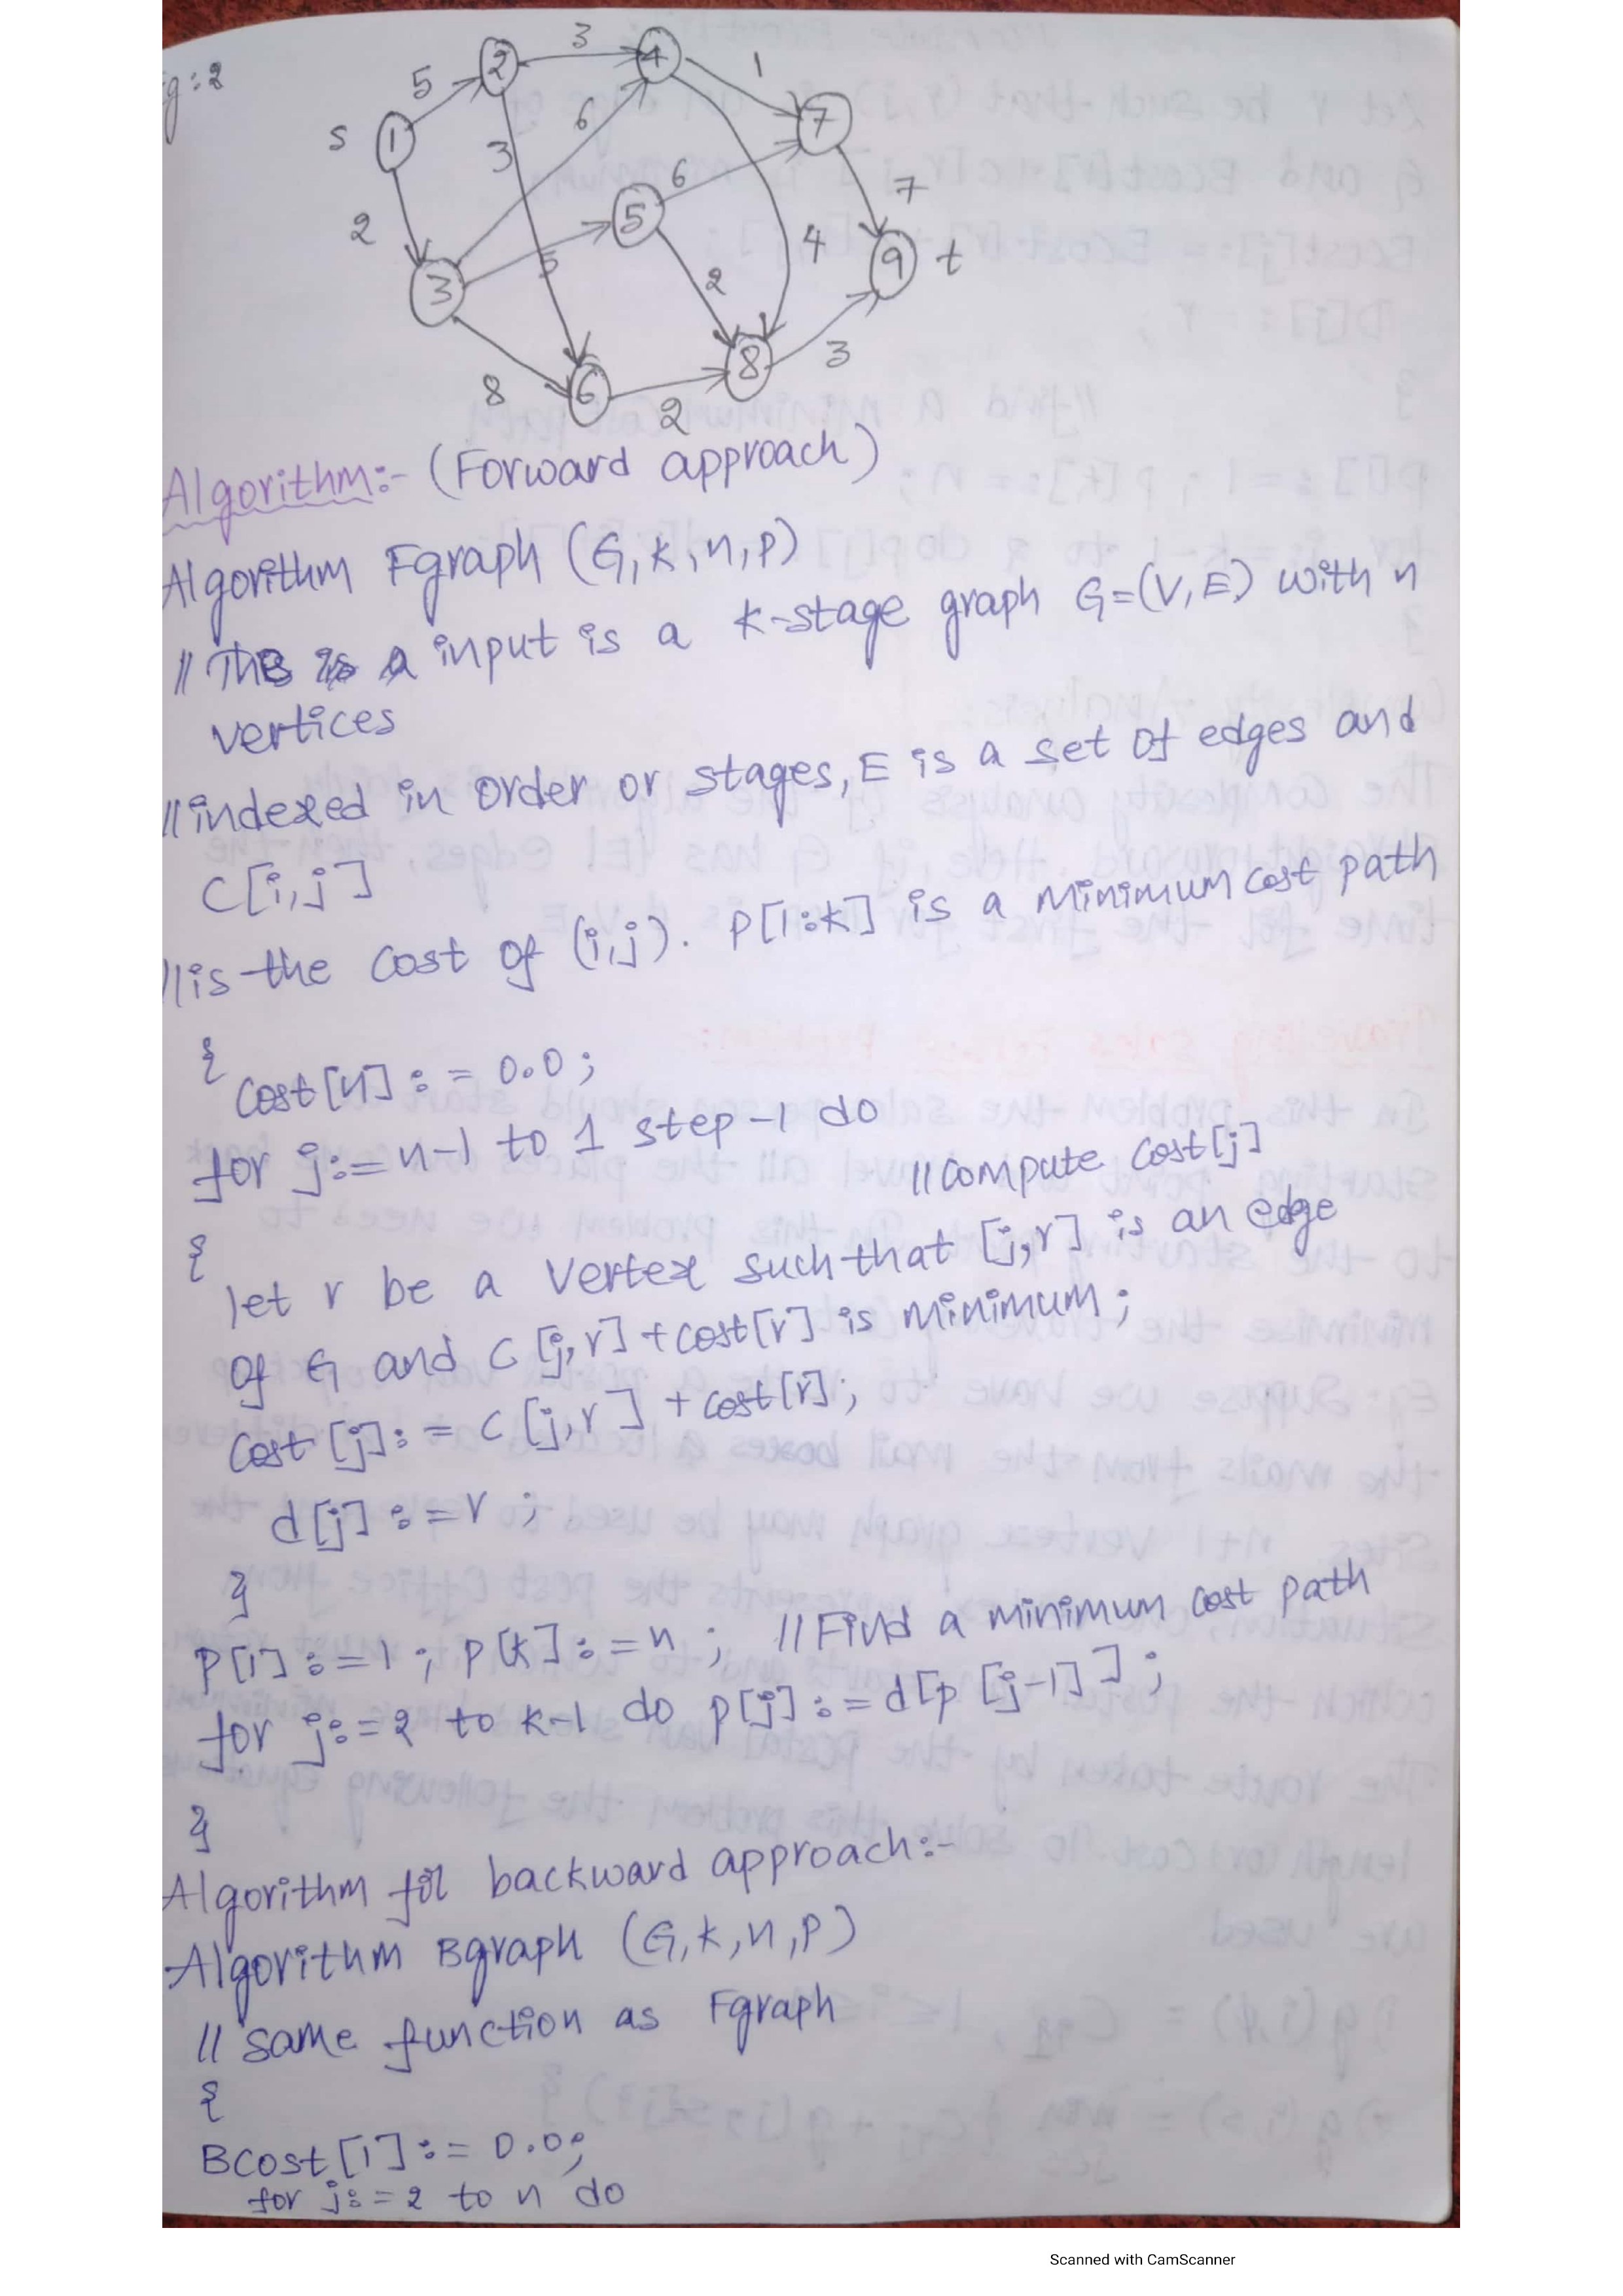 g:2
5
2
3
4
1
s
1
3
6
7
6
5
7
2
3
5
2
4
9
t
8
6
2
8
3
Algorithm:- (Forward approach)
Algorithm Fgraph (G, K, n, p)
// The input is a k-stage graph G=(V,E) with n
vertices
// indexed in order or stages, E is a set of edges and
C[i,j]
// is the cost of (i,j). P[1:k] is a minimum cost path
{
Cost[n] := 0.0;
for j:=n-1 to 1 step -1 do
// compute cost[j]
{
let r be a vertex such that [j,r] is an edge
of G and C[j,r]+cost[r] is minimum;
Cost [j]:= C [j,r] + cost[r];
d[j] := r ;
}
P[1] :=1 ; P[k] := n ; // Find a minimum cost path
for j:=2 to k-1 do p[j] := d[p [j-1]] ;
}
Algorithm for backward approach:-
Algorithm Bgraph (G,k,n,P)
// same function as Fgraph
{
BCost[1] := 0.0;
for j:=2 to n do
Scanned with CamScanner